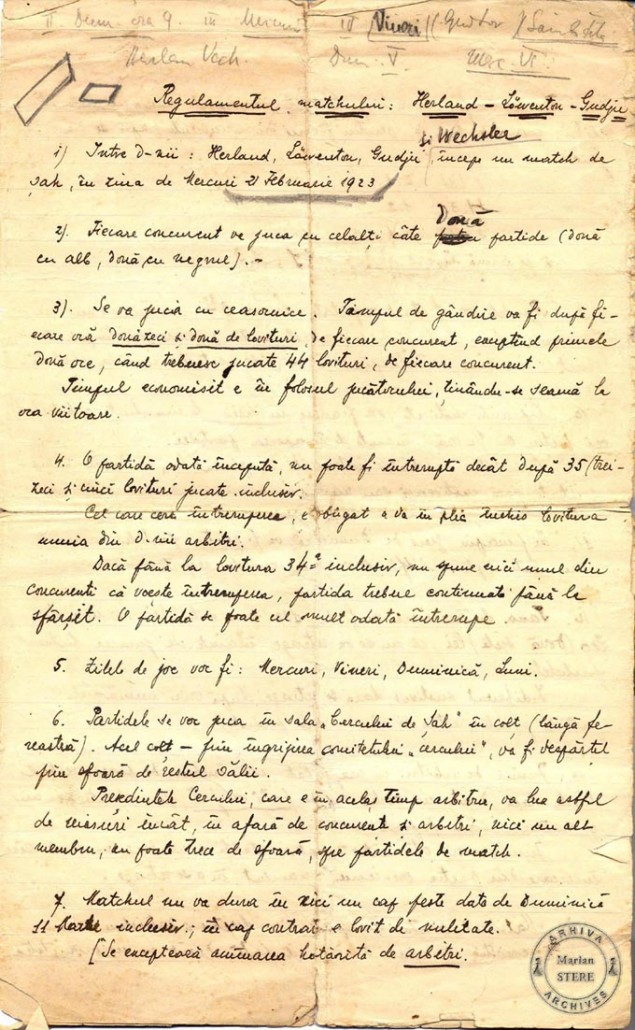 II Dum. ora 9. III Mercuri IV Vineri
Herlan Vech. Dum. V Merc. VI
Regulamentul matchului: Herland – Löwenton – Gudju
și Wechsler
1) Între D-nii: Herland, Löwenton, Gudju începe un match de
șah, în ziua de Mercuri 21 Februarie 1923
Două
2). Fiecare concurent va juca cu celalți câte partide (două
cu alb, două cu negrul). –
3). Se va juca cu ceasornice. Timpul de gândire va fi după fi-
ecare oră douăzeci și două de lovituri, de fiecare concurent, exceptând primele
două ore, când trebuesc jucate 44 lovituri, de fiecare concurent.
Timpul economisit e în folosul jucătorului, ținându-se seamă la
ora viitoare.
4. O partidă odată începută, nu poate fi întreruptă decât după 35 (trei-
zeci și cinci lovituri jucate inclusiv.
Cel care cere întreruperea, e obligat a da în plic închis lovitura
unuia din D-nii arbitri.
Dacă până la lovitura 34ª inclusiv, nu spune nici unul din
concurenti că voește întreruperea, partida trebue continuată până la
sfârșit. O partidă se poate cel mult odată întrerupe.
5. Zilele de joc vor fi: Mercuri, Vineri, Duminică, Luni.
6. Partidele se vor juca în sala „Cercului de Șah" în colț (lângă fe-
reastră). Acel colț – prin îngrijirea comitetului „cercului", va fi despărțit
prin sfoară de restul sălii.
Președintele Cercului, care e în acelaș timp arbitru, va lua astfel
de măsuri încât, în afară de concurenți și arbitri, nici un alt
membru, nu poate trece de sfoară, spre partidele de match.
7. Matchul nu va dura în nici un caz peste data de Duminică
11 Marte inclusiv; în caz contrar e lovit de nulitate.
[Se exceptează amânarea hotărâtă de arbitri.
ARHIVA
Marian
STERE
ARCHIVES